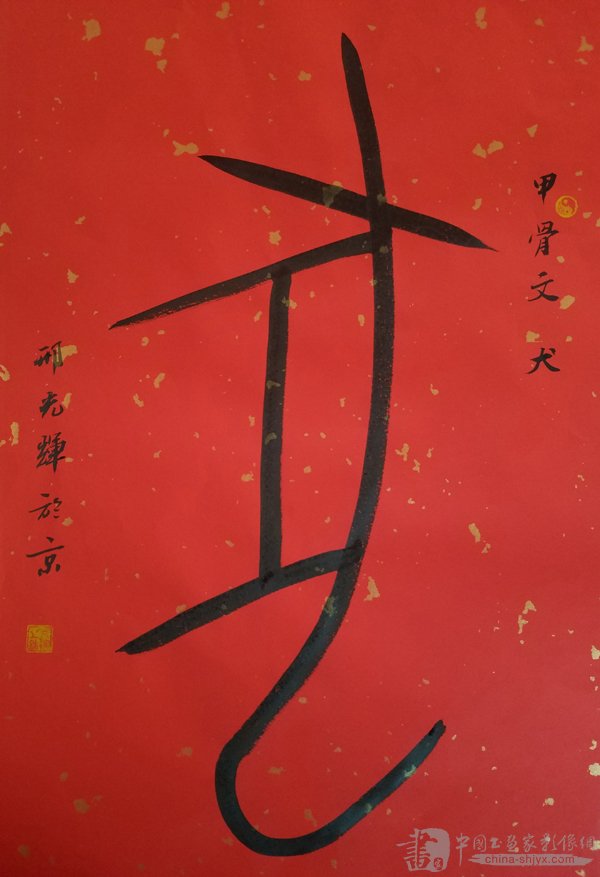 犬
甲骨文 犬
邢光輝於京
書 中国书画家影像網
china-shjyx.com